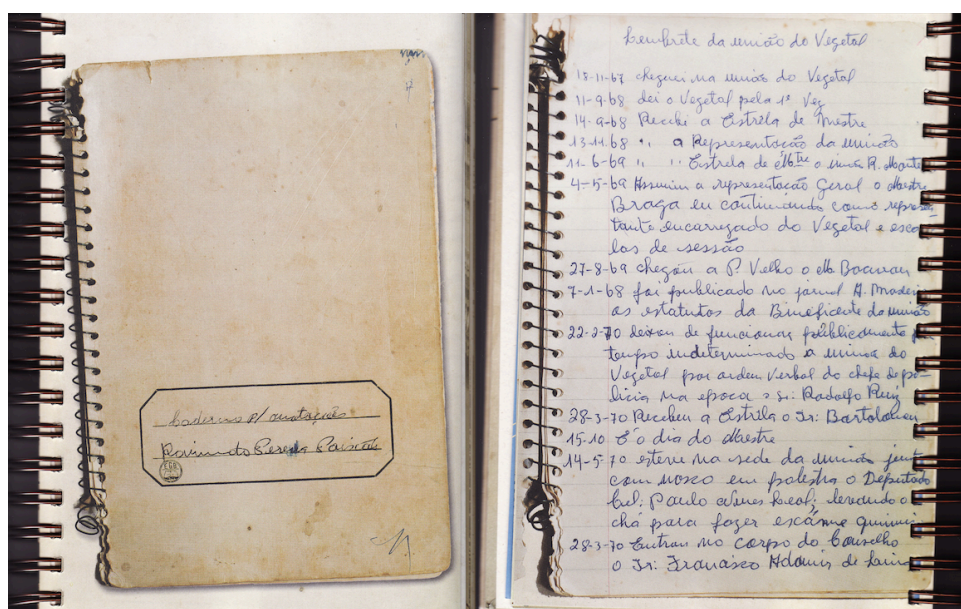 Caderno p/ anotações
Raimundo Pereira Paixão
Lembrete da união do Vegetal
18-11-67 cheguei na união do Vegetal
11-9-68 dei o Vegetal pela 1ª Vez
14-9-68 Recebi a Estrela de Mestre
13-11-68 " a Representação da união
11-6-69 " " Estrela de Mtre o irmão R. Monte
4-5-69 Assumiu a representação Geral o Mestre
Braga eu continuando como represen-
tante encarregado do Vegetal e esca-
las de sessão
27-8-69 chegou a P. Velho o M
7-1-68 foi publicado no jornal A. Madei
os estatutos da Bineficente da união
22-2-70 deixou de funcionar públicamente p
tempo indeterminado a união do
Vegetal por ordem verbal do chefe de po-
licia na epoca o Sr: Rodolfo Ruiz
28-3-70 Recebeu a Estrela o Sr: Bartolomeu
15-10 É o dia do Mestre
14-5-70 esteve na sede da união junt
com nosco em palestra o Deputado
Cel. Paulo Nunes Leal; levando o
chá para fazer escâme quimic
28-3-70 Entrou no corpo do Conselho
o Sr: Francisco Adamir de Lima